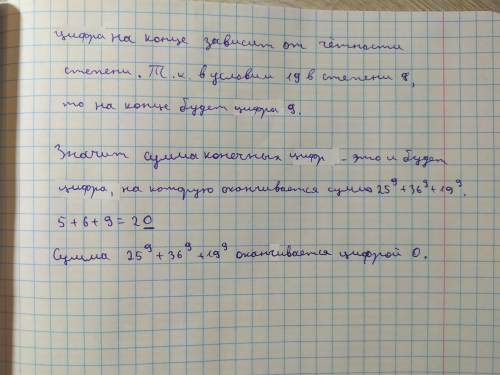 цифра на конце зависит от чётности
степени. Т.к. в условии 19 в степени 9,
то на конце будет цифра 9.
Значит сумма конечных цифр - это и будет
цифра, на которую оканчивается сумма 25⁹+36⁹+19⁹.
5+6+9=20
Сумма 25⁹+36⁹+19⁹ оканчивается цифрой 0.